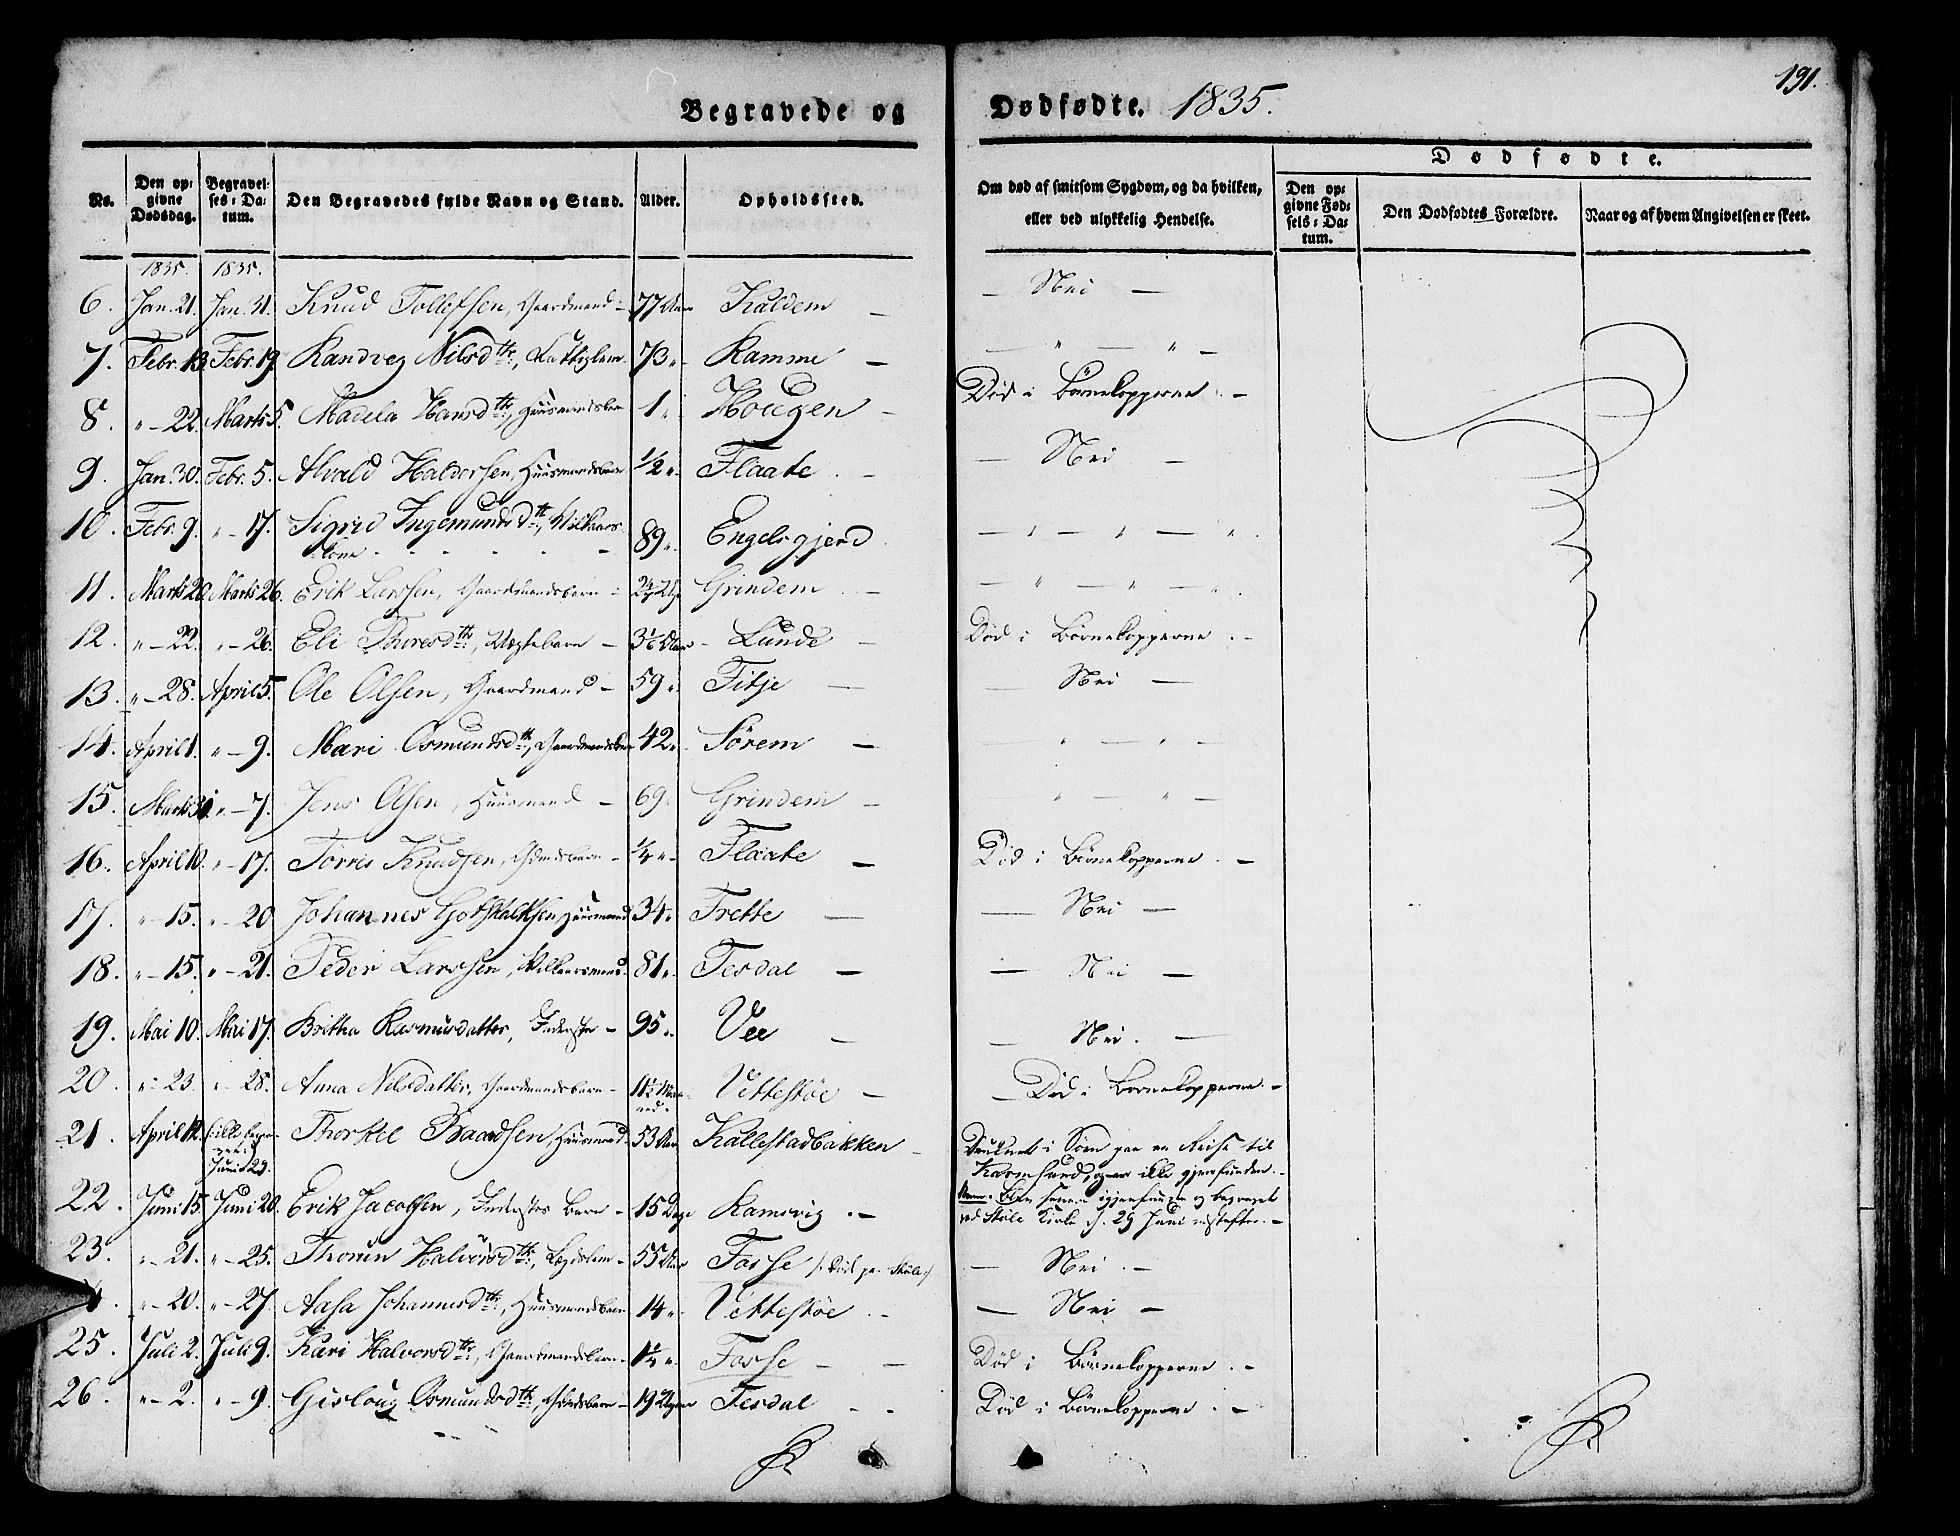 191.
Begravede og Dødfødte. 1835.
Dødfødte.
No. | Den opgivne Dødsdag. | Begravelses-Datum. | Den Begravedes fulde Navn og Stand. | Alder. | Opholdssted. | Om død af smitsom Sygdom, og da hvilken, eller ved ulykkelig Hendelse. | Den opgivne Fødsels-Datum. | Den Dødfødtes Forældre. | Naar og af hvem Angivelsen er skeet.
1835. 1835.
6. Jan. 21. Jan. 31. Knud Tollefsen, Gaardmand - 77 Aar Kaldem — — Nei —
7. Febr. 13. Febr. 19. Randveg Nilsdtr:, 73 " Ramme — — " — " —
8. " — 22. Marts 5. Madela Hansdtr:, Huusmandsbarn 1 " Hougen — Død i Børnekopperne. —
9. Jan. 30. Febr. 5. Haldorsen, Huusmandsbarn ½ " Flaate. — — Nei —
10. Febr. 9. " — 17. Sigrid Ingemundsdtr:, Vilkaars-
kone - - - - - 89 " Engelsgjerd. — " — " — " — ".
11. Marts 20. Marts 26. Erik Larssen, Gaardmandsbarn - Grindem. — — " — " — ".
12. " — 22. " — 26. Eli Thuresdtr:, Uægtebarn — Lunde — Død i Børnekopperne. —
13. " — 28. April 5. Ole Olsen, Gaardmand — 59 " Fitje — — Nei —
14. April 1. " — 9. Mari Osmundsdtr:, 42 " Sørem — " — " —
15. Marts 30. " — 7. Jens Olsen, Huusmand — 69 " Grindem — " — " —
16. April 10. " — 17. Torres Knudsen, Gdmdsbarn — ¼ " Flaate — Død i Børnekopperne. —
17. " — 15. " — 20 Johannes Gotskalksen, Huusmand 34 " Frette — — Nei —
18. " — 15. " — 21. Peder Larssen, Vilkaarsmand. 81 " Tesdal — — Nei —
19. Mai 10. Mai 17. Britha Rasmusdatter, Inderste — 95 " Vee — — Nei. —
20. " — 23. " — 28. Anna Nilsdatter, Gaardmandsbarn — 11½ Maa-
ned. Vettestøe — — Død i Børnekopperne. —
21. April 12. (: ikke
Juni 29. Thorkil Baardsen, Huusmand — 53 Aar Kallestadbakken — Druknet i Søen paa en Reise til
Karmsund, og er ikke gjenfunden. —
22. Juni 15. Juni 20. Erik Jacobsen, Inderstes Barn — 15 Dage Ramsvig. — Blev senere igjenfunden og begravet
ved Kirke d. 29 Juni —
23. " — 21. " — 25. Thorun Halvorsdtr:, Lægdslem — 55 Aar Fosse /: Død paa :/ — Nei. —
" — 20. " — 27. Aasa Johannesdtr:, Huusmandsbarn 14 " Vettestøe. — — Nei —
25. Juli 2. Juli 9. Kari Halvorsdtr:, Gaardmandsbarn — 1¼ " Fosse — — Død i Børnekopperne. —
26. " — 2. " — 9. Gislaug Osmundsdtr:, Gdmdsbarn — 19 Uger Tesdal — - Død i Børnekopperne. —